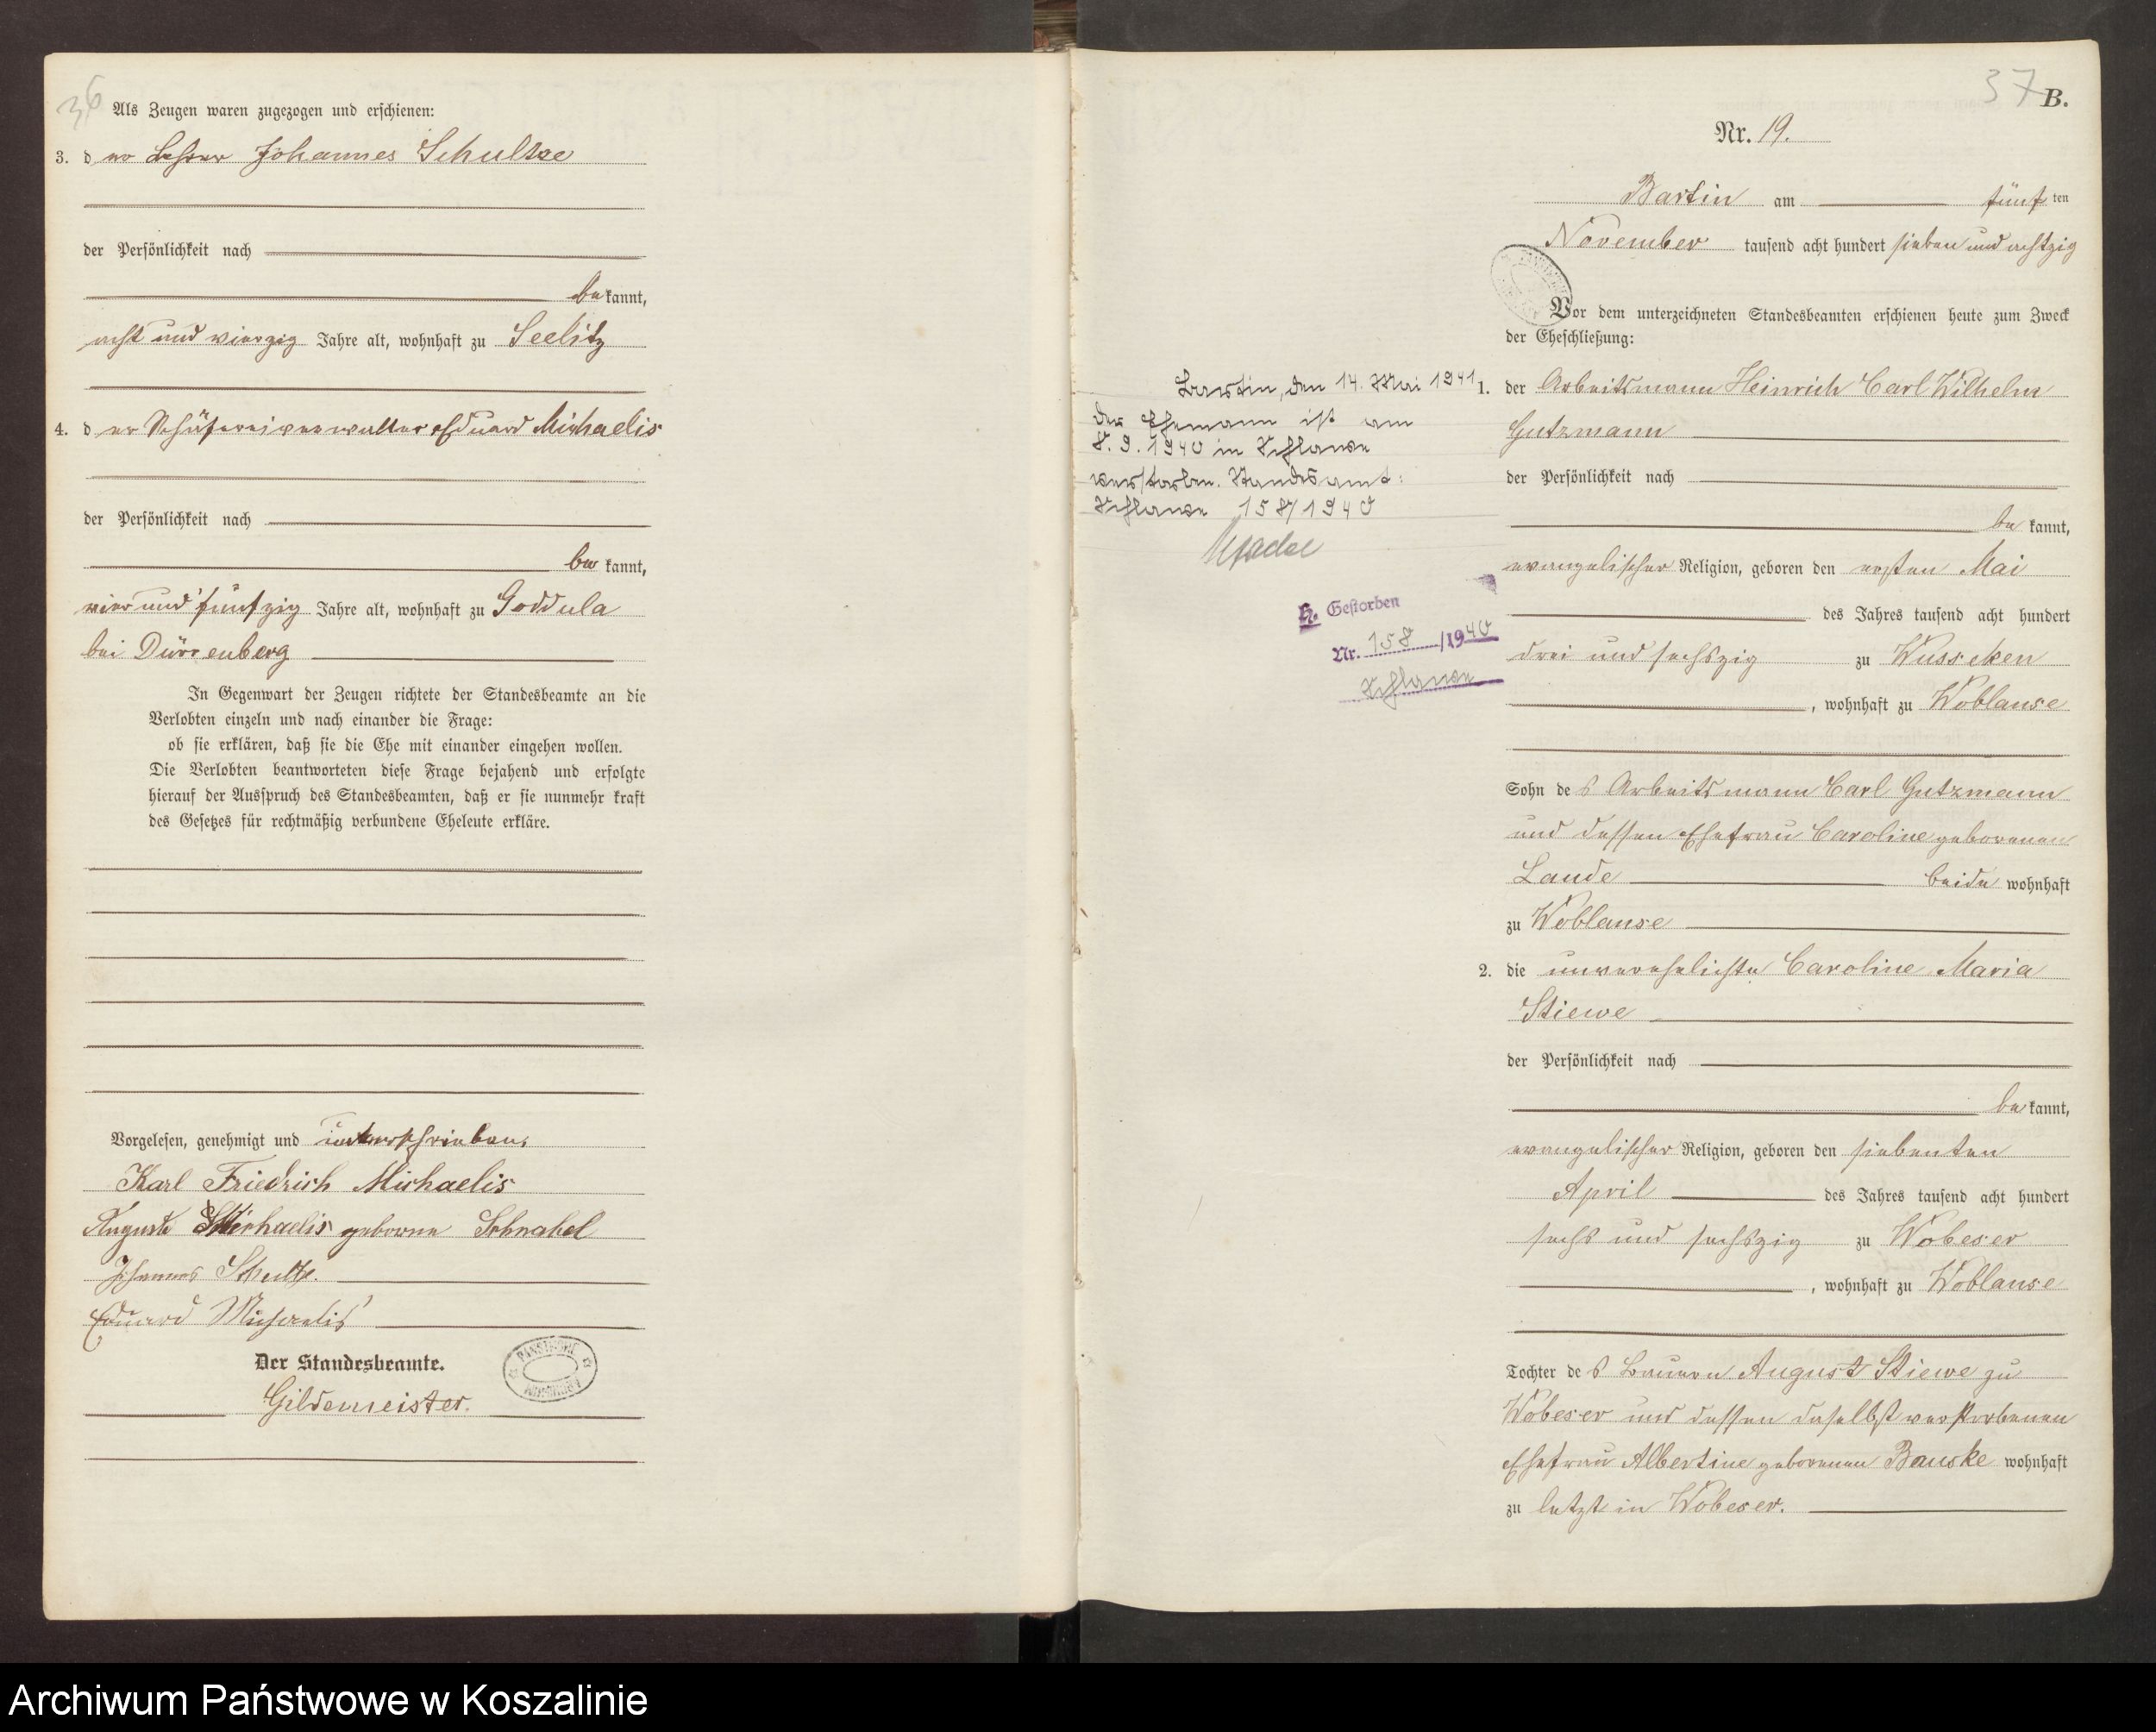 36
Als Zeugen waren zugezogen und erschienen:
3. der Lehrer Johannes Schultze
der Persönlichkeit nach
bekannt,
acht und vierzig Jahre alt, wohnhaft zu Seelitz
4. der Schäfereiverwalter Eduard Michaelis
der Persönlichkeit nach
bekannt,
vier und fünfzig Jahre alt, wohnhaft zu Goddula
bei Dürrenberg
In Gegenwart der Zeugen richtete der Standesbeamte an die
Verlobten einzeln und nach einander die Frage:
ob sie erklären, daß sie die Ehe mit einander eingehen wollen.
Die Verlobten beantworteten diese Frage bejahend und erfolgte
hierauf der Ausspruch des Standesbeamten, daß er sie nunmehr kraft
des Gesetzes für rechtmäßig verbundene Eheleute erkläre.
Vorgelesen, genehmigt und unterschrieben.
Karl Friedrich Michaelis
Auguste Michaelis geborene Schnabel
Johannes Schultze.
Eduard Michaelis
Der Standesbeamte.
Gildemeister.
37
B.
Nr. 19.
Bartin am fünften
November tausend acht hundert sieben und achtzig
Vor dem unterzeichneten Standesbeamten erschienen heute zum Zweck
der Eheschließung:
1. der Arbeitsmann Heinrich Carl Wilhelm
Gutzmann
der Persönlichkeit nach
bekannt,
evangelischer Religion, geboren den ersten Mai
des Jahres tausend acht hundert
drei und sechszig zu Wusseken
, wohnhaft zu Woblanse
Sohn des Arbeitsmann Carl Gutzmann
und dessen Ehefrau Caroline geborenen
Laude beide wohnhaft
zu Woblanse
2. die unverehelichte Caroline Maria
Stiewe
der Persönlichkeit nach
bekannt,
evangelischer Religion, geboren den siebenten
April des Jahres tausend acht hundert
sechs und sechszig zu Wobeser
, wohnhaft zu Woblanse
Tochter des Bauern August Stiewe zu
Wobeser und dessen daselbst verstorbenen
Ehefrau Albertine geborenen Bauske wohnhaft
zu letzt in Wobeser.
Bartin, den 14. Mai 1941
Der Ehemann ist am
8. 9. 1940 in Schlawe
verstorben. Standesamt:
Schlawe 158/1940
H. Gestorben
Nr. 158/1940
Schlawe
Archiwum Państwowe w Koszalinie